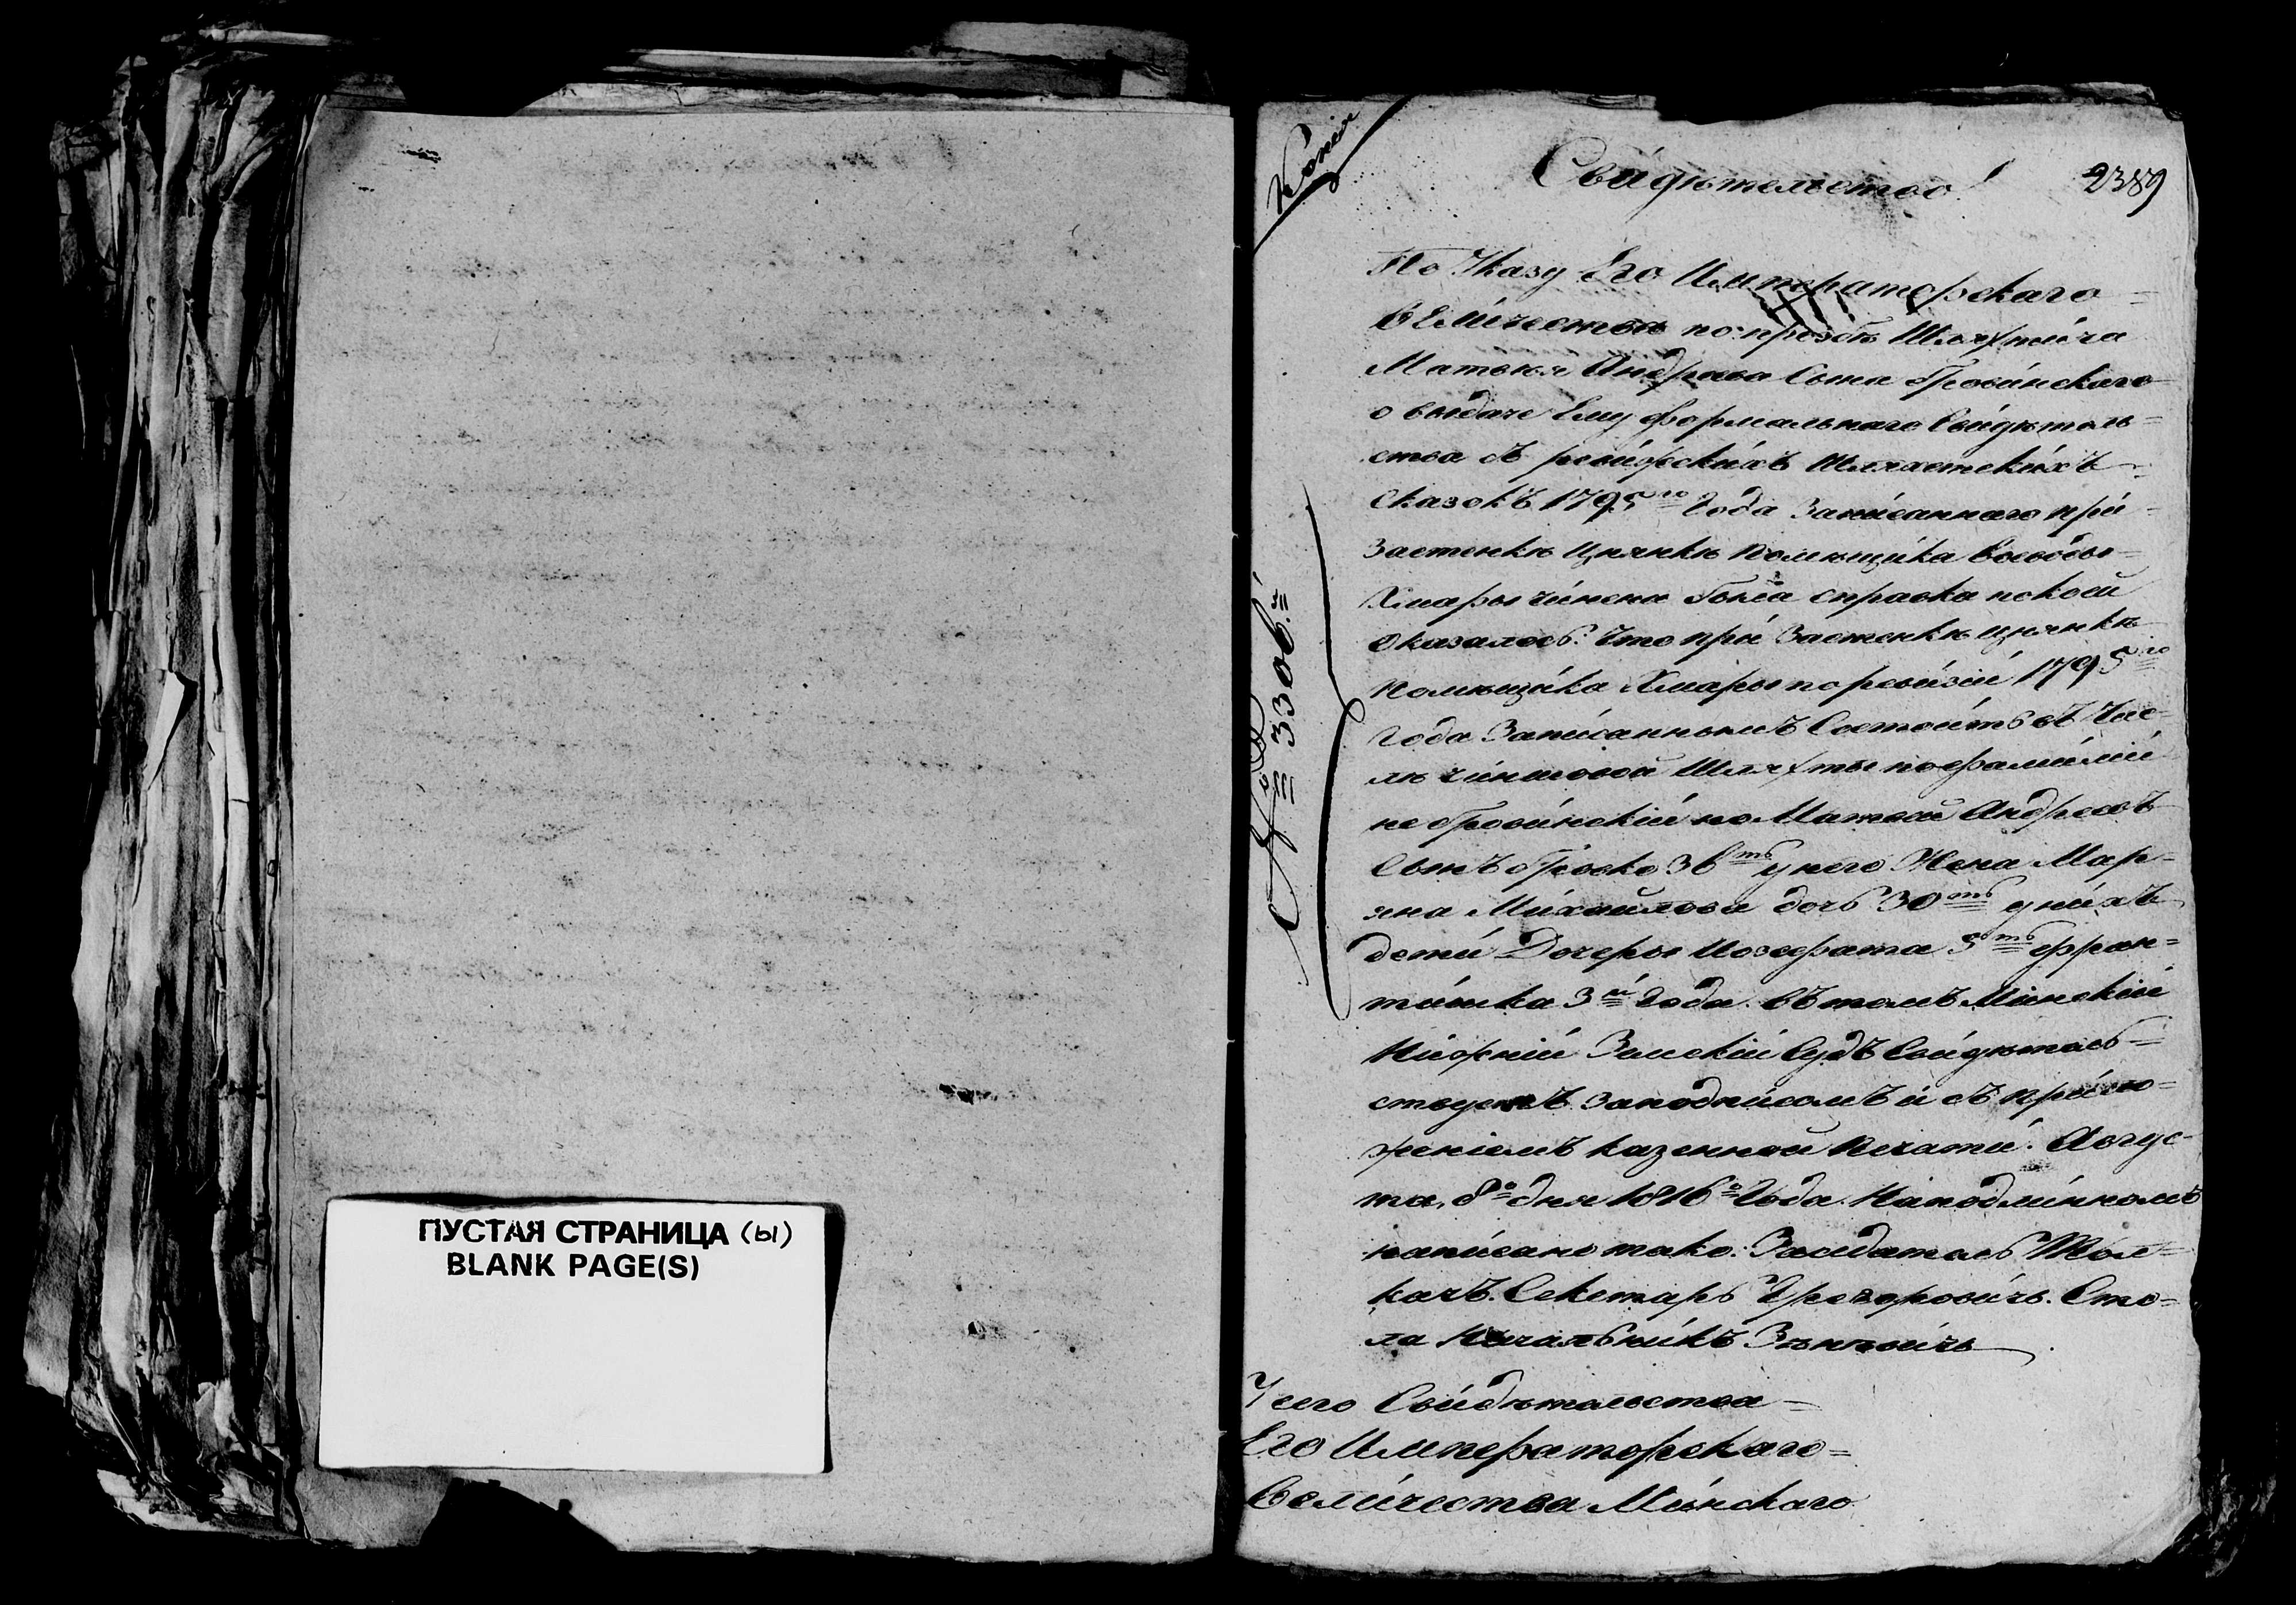 ПУСТАЯ СТРАНИЦА (ы)
BLANK PAGE(S)
Копія
Свидѣтельство
2389
№ 3306.й
По Указу Его Императорскаго
Величества по прозбѣ Шляхтича
Матвѣя Андреева Сына Гровинскаго
о выдаче Ему формальнаго Свидѣтель=
ства съ ревизскихъ Шляхетскихъ
Сказокъ 1795го Года Записаннаго при
Застенкѣ Цнянкѣ Помѣщика Воеводы
Хмары чинена была справка по коей
Оказалось: Что при Застенкѣ Цнянкѣ
Помѣщика Хмары по ревизіи 1795го
Года Записаннымъ Состоитъ въ Чис=
лѣ чиншовой Шляхты по фамиліи
не Гровинскій но Матвей Андреевъ
Сынъ 36ть у него Жена Мар=
яна Михайлова дочь 30ть у нихъ
дети Дочеры Иозефата 5ть Фран=
тишка 3й Года. Въ томъ Минскій
Нижній Земскій Судъ Свидѣтель=
ствуетъ За подписомъ и съ прило=
женіемъ казенной Печати. Авгус=
та 8о дня 1816о Года. На подлинномъ
написано тако: Заседатель
Секетарь Грегоровичъ. Сто=
ла Начальникъ Зѣнковичь
У сего Свидѣтельства
Его Императорскаго=
Величества Минскаго